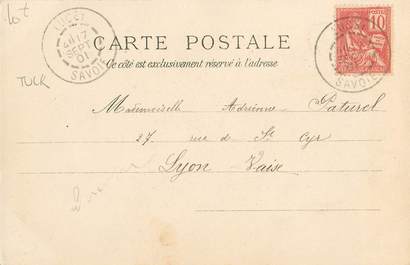 Lot
LUCEY
17
SEPT
01
SAVOIE
CARTE POSTALE
Ce côté est exclusivement réservé à l'adresse
TUCK
10
SAVOIE
Mademoiselle Adrienne Paturel
27 rue de St Cyr
Lyon Vaise